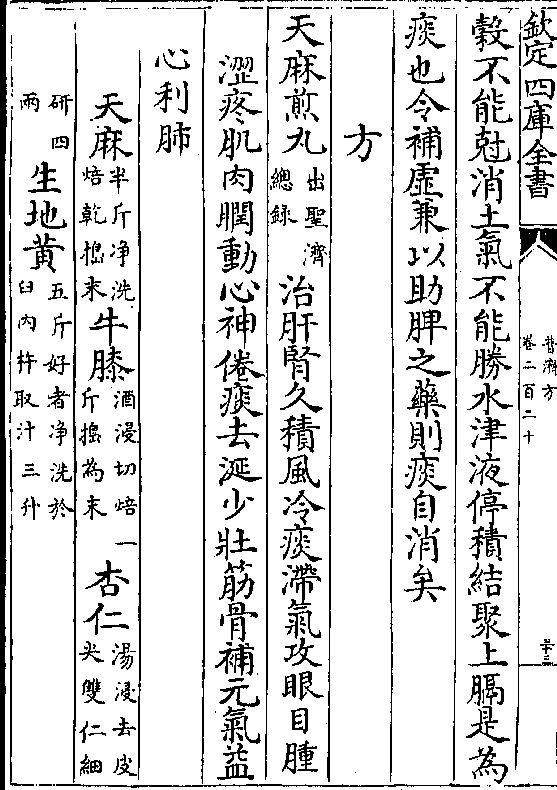 欽定四庫全書
普濟方
卷二百二十
三十三
穀不能尅消土氣不能勝水津液停積結聚上膈是為
痰也令補虛兼以助脾之藥則痰自消矣
方
天麻煎丸出聖濟總録治肝腎久積風冷痰滯氣攻眼目腫
澀疼肌肉瞤動心神倦痰去涎少壯筋骨補元氣益
心利肺
天麻半斤净洗焙乾搗末牛膝酒浸切焙一斤搗為末杏仁湯浸去皮尖雙仁細
研四兩生地黄五斤好者净洗於臼内杵取汁三升